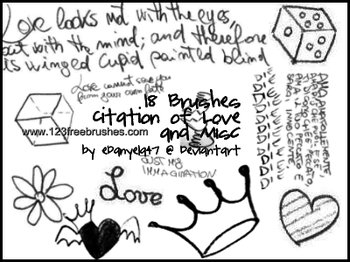 Love looks not with the eyes,
but with the mind; and therefore
is winged Cupid painted blind
Love cannot save you
from your own fate
18 Brushes
Citation of Love
and Misc
www.123freebrushes.com
by eDanyela47 @ Deviantart
JUST MY
IMMAGINATION
Love